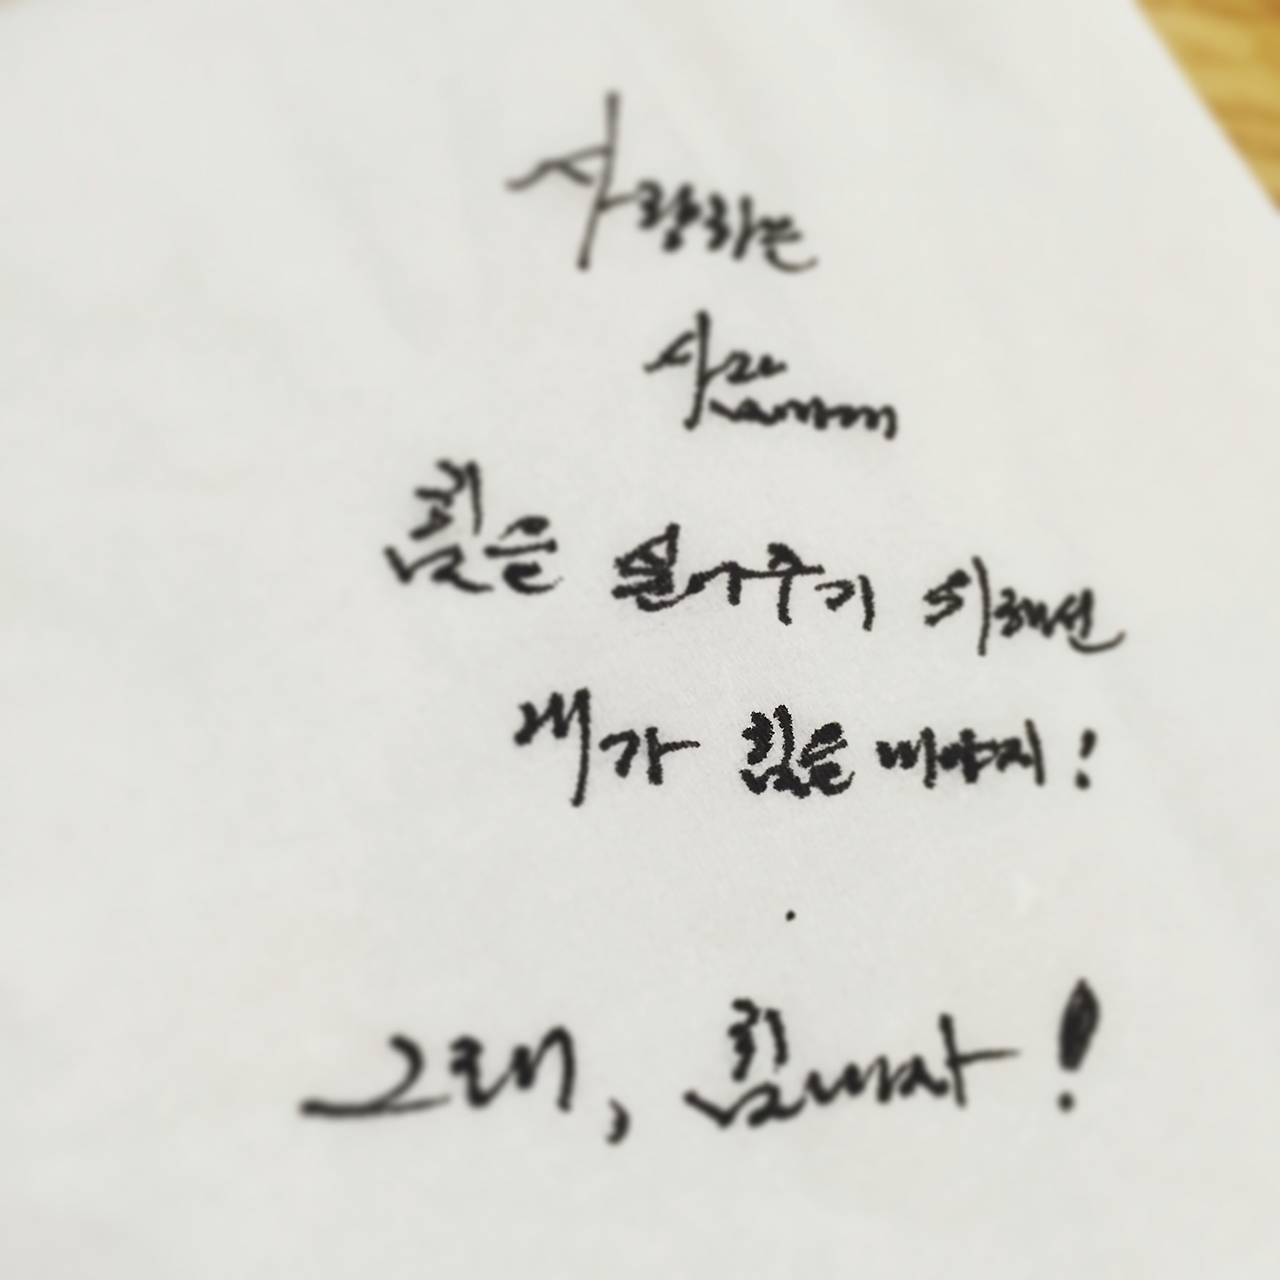 사랑하는
사람
힘을 실어주기 위해선
내가 힘을 내야지!
.
그래, 힘내자!